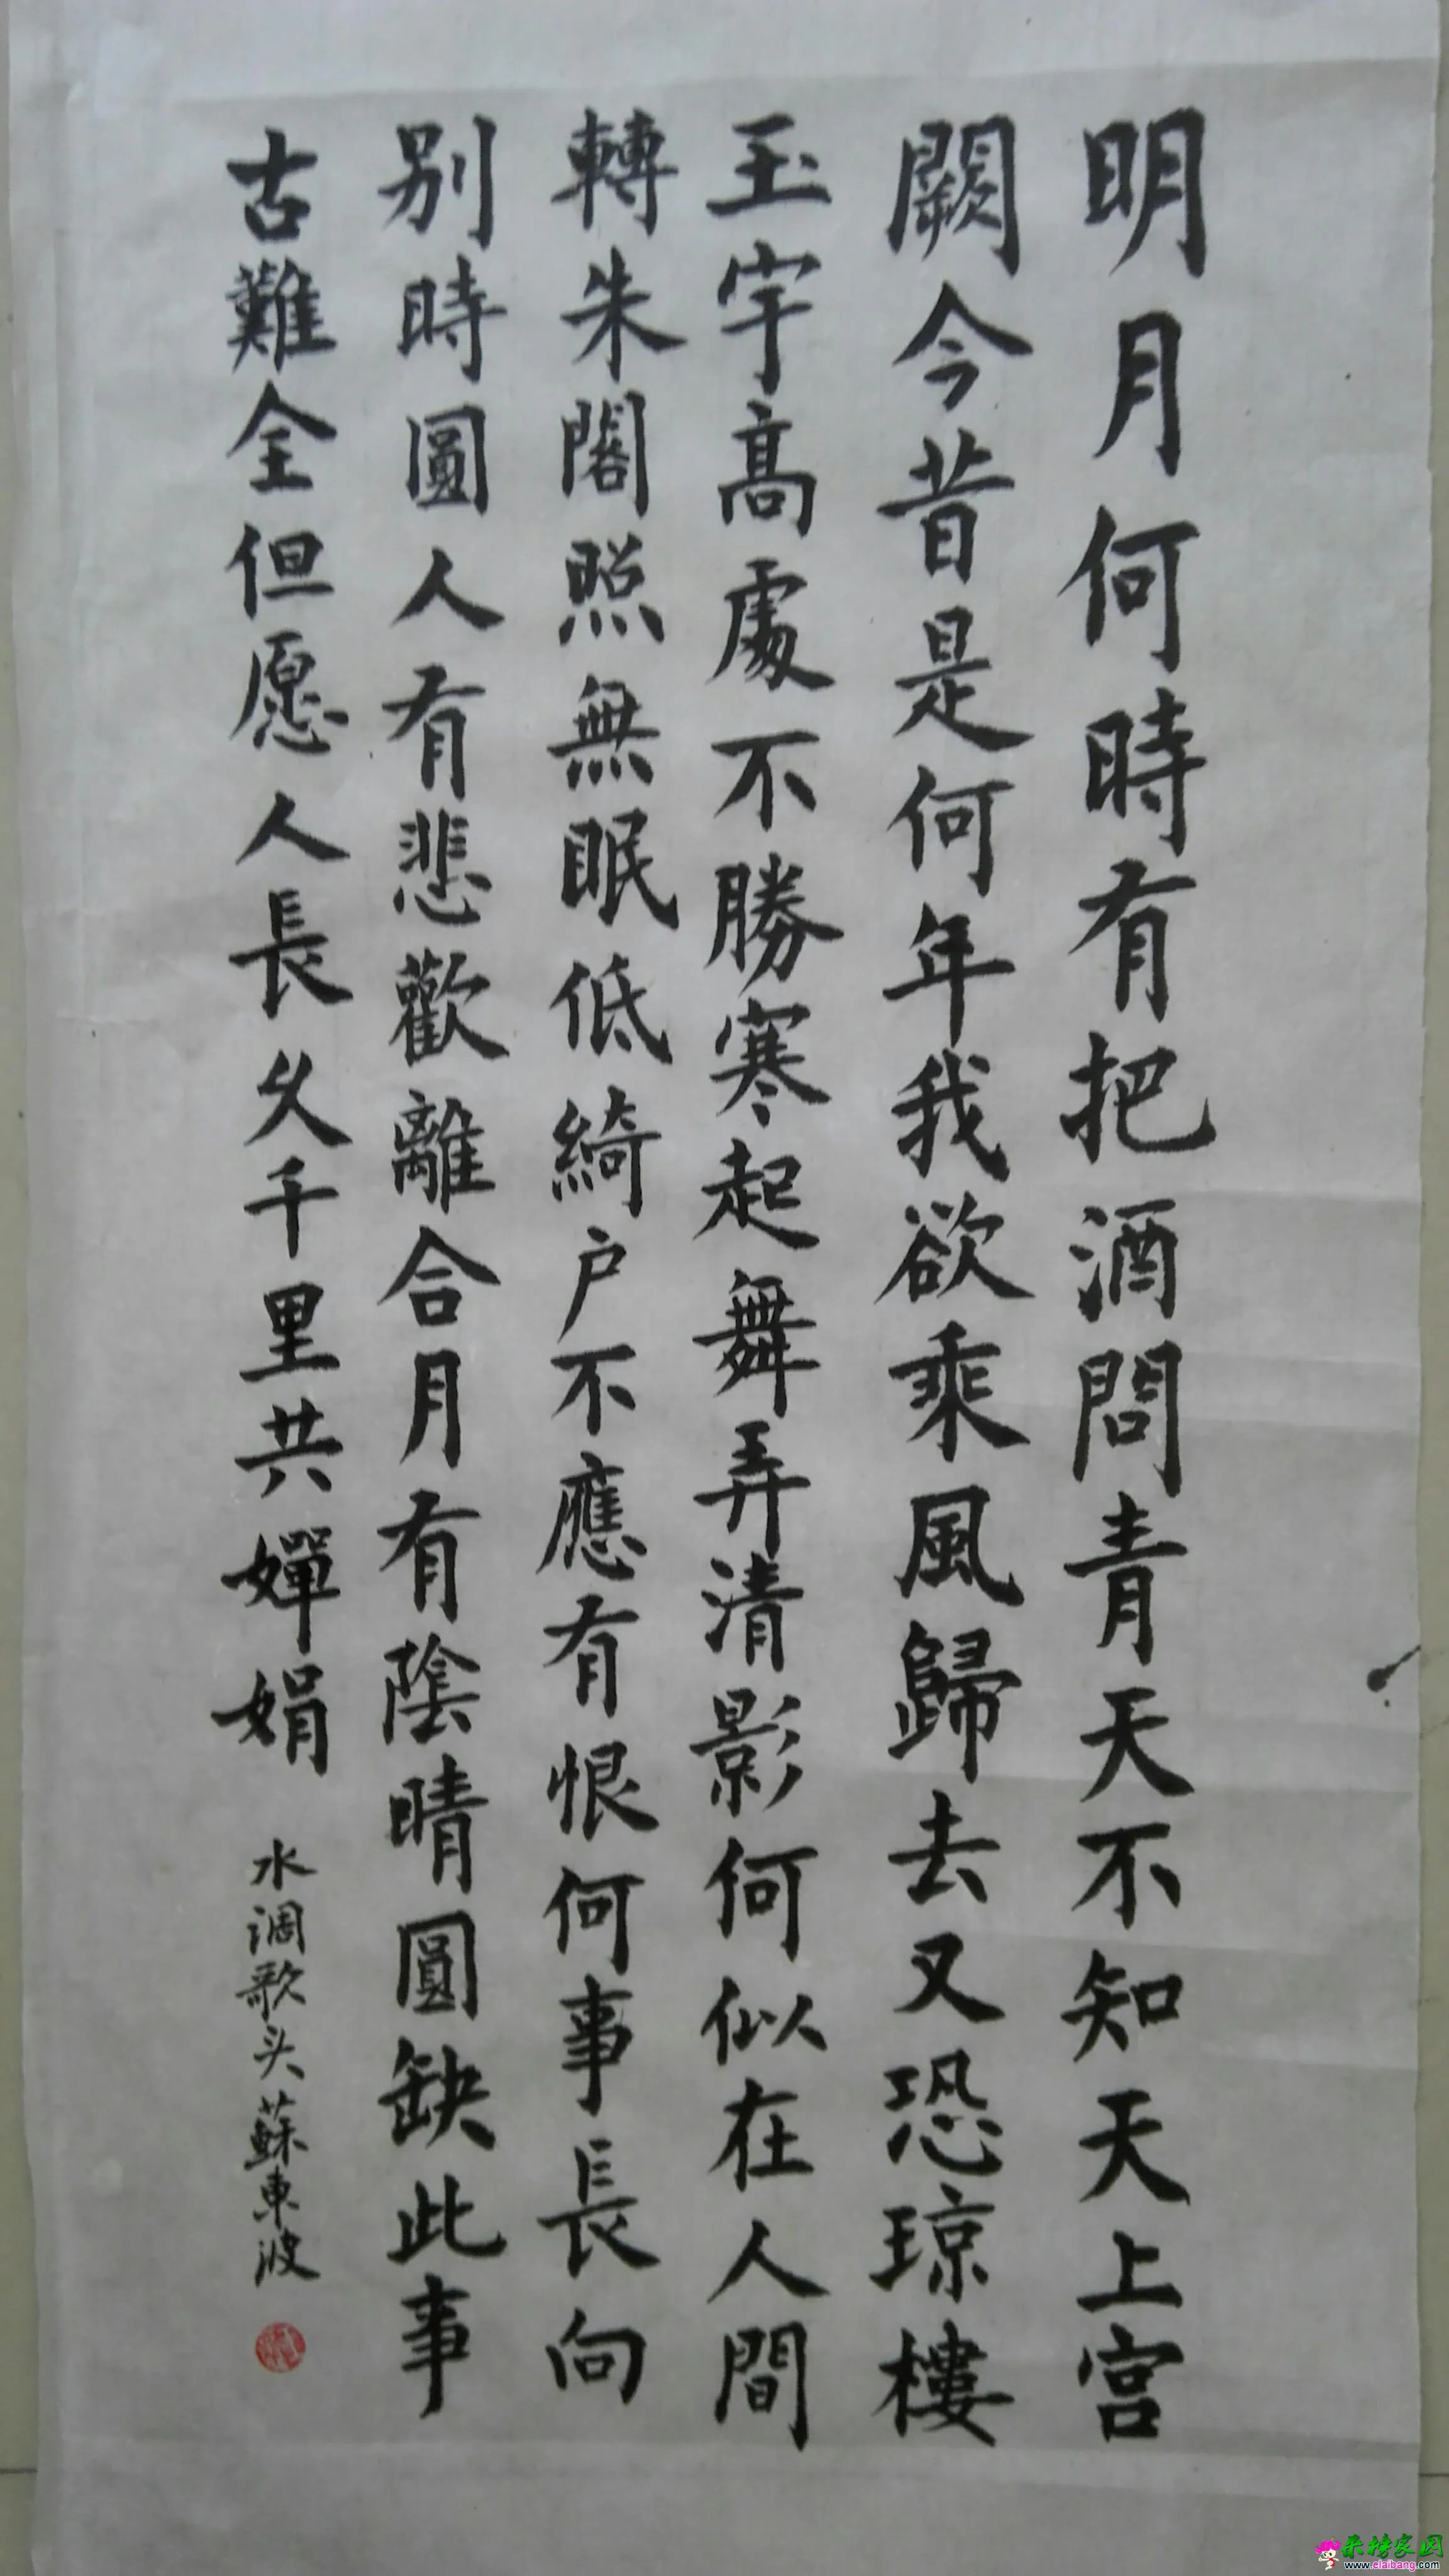 明月何時有把酒問青天不知天上宫
闕今昔是何年我欲乘風歸去又恐琼樓
玉宇高處不勝寒起舞弄清影何似在人間
轉朱閣照無眠低綺户不應有恨何事長向
别時圓人有悲歡離合月有陰晴圓缺此事
古難全但愿人長久千里共嬋娟
水调歌头蘇東波
来榜家园
www.elaibang.com